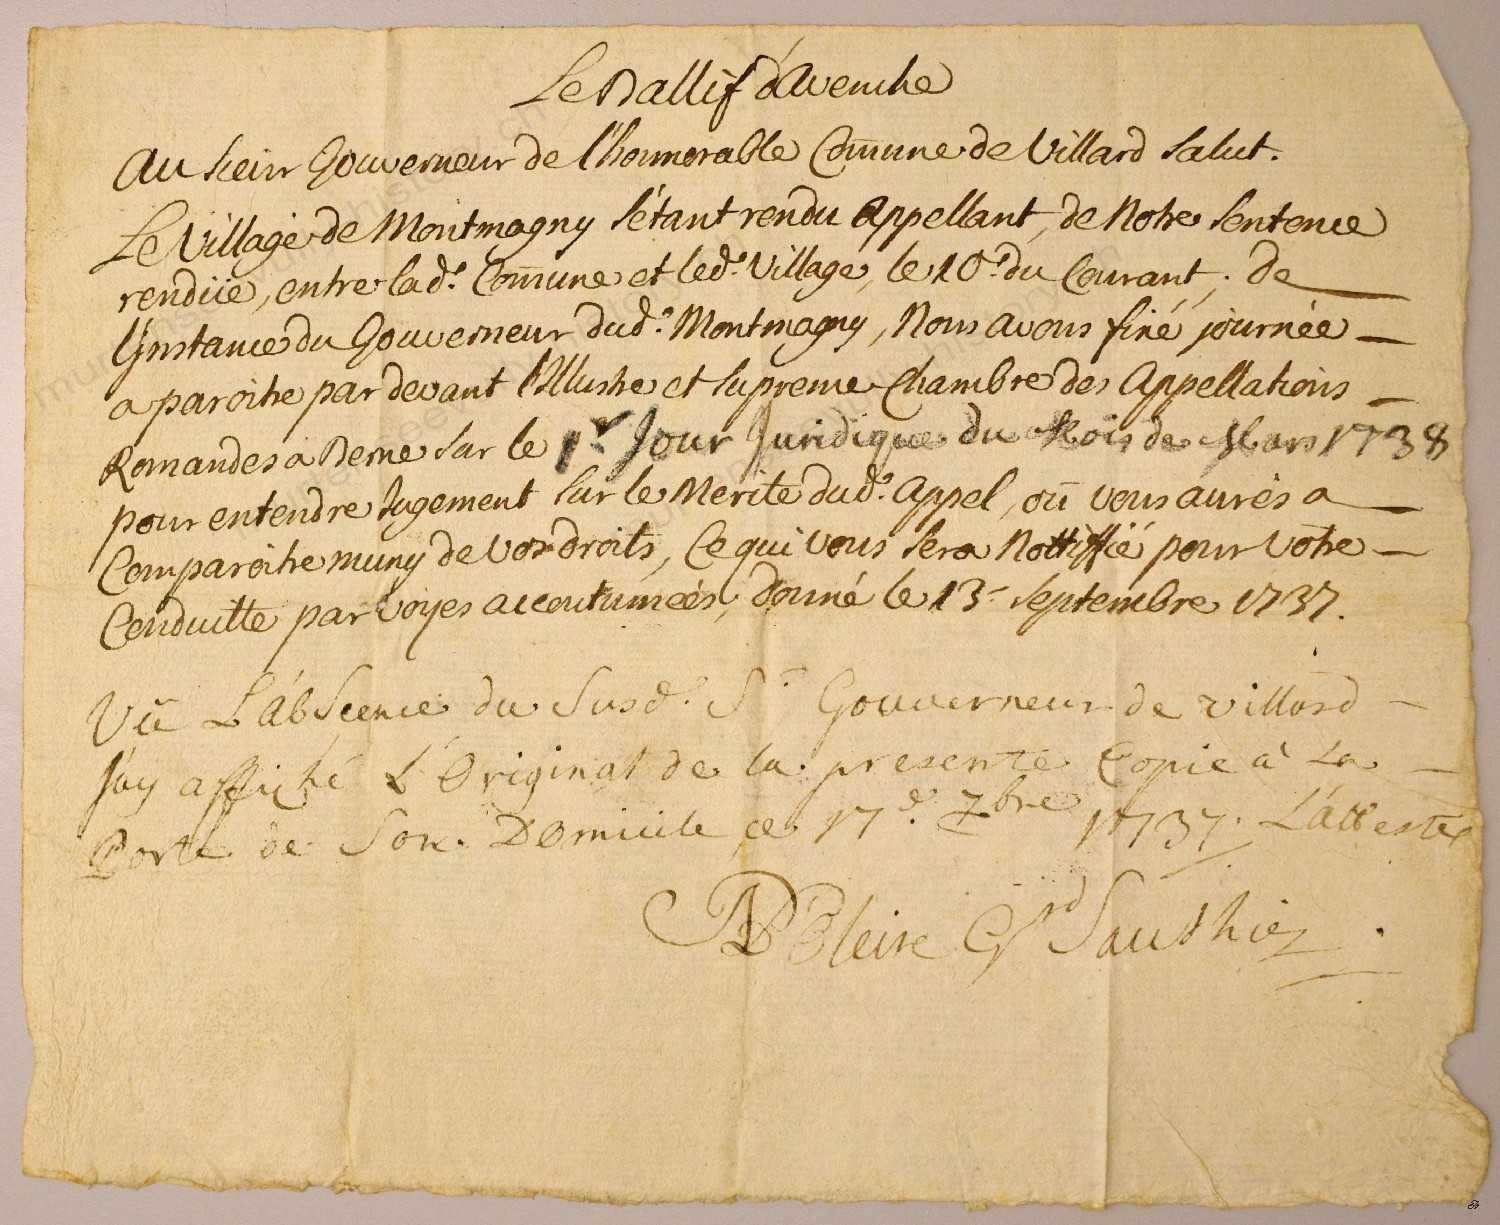 Le Ballif d'Avenche
Au Sieur Gouverneur de l'honnorable Com̄une de Villard Salut.
Le Village de Montmagny s'étant rendu Appellant, de Notre Sentence
rendüe, entre lad.e Com̄une et led.t Village, le 10.e du Courant; de
l'Instance du Gouverneur dud.t Montmagny, Nous avons fixé journée
a paroitre par devant l'Illustre et Supreme Chambre des Appellations
Romandes a Berne sur le 1.r Jour Juridique du Mois de Mars 1738
pour entendre Jugement sur le Merite dud.t Appel, où vous aurés a
Comparoitre muny de vos droits, Ce qui vous sera Nottiffié pour votre
Conduitte par voyes accoutumées, Donné le 13.e Septembre 1737.
Vû L'abscence du Susd.t S.r Gouverneur de Villard
J'ay affiché L'Original de la presente Copie à La
Porte de Son Domicile ce 17.e 7bre 1737. L'atteste
Bleire Sauthiez